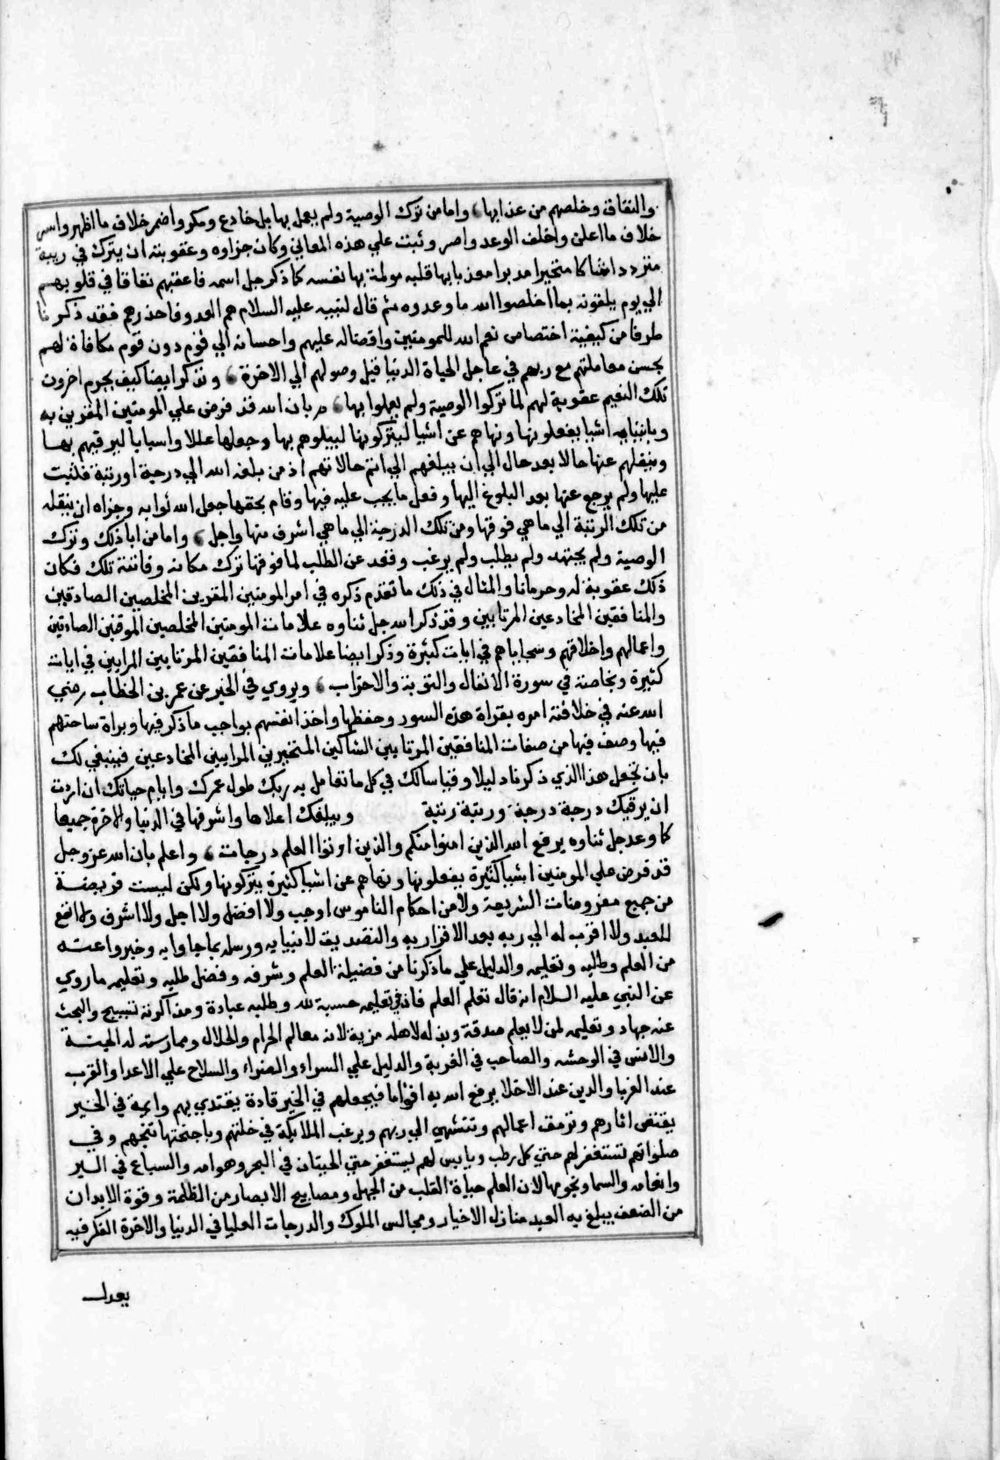 والنفاق وخلصهم من عذابها، وامامن ترك الوصية ولم يعمل بها بل خادع ومكر واضمر خلاف ما اظهر واسر
خلاف ما اعلن واخلف الوعد واصر وثبت علي هذه المعاني وكان جزاوه وعقوبته ان يترك في ريبة
متردد اشاكا متحيرا مدبرا معذبا بها قلبه مولمة بها نفسه كما ذكر جل اسمه فاعقبهم نفاقا في قلوبهم
الي يوم يلقونه بما اخلفوا الله ما وعدوه ثم قال لنبيه عليه السلام هم العدو فاحذرهم فقد ذكرنا
طرفا من كيفية اختصاص نعم الله للمومنين وافضاله عليهم واحسانه الي قوم دون قوم مكافاة لهم
بحسن معاملتهم مع ربهم في عاجل الحياة الدنيا قبل وصولهم الي الاخرة، ونذكر ايضا كيف يحرم اخرون
تلك النعيم عقوبة لهم لما تركوا الوصية ولم يعملوا بها، بان الله قد فرض علي المومنين المقرين به
وبانبيايه اشيا يفعلونها ونهاهم عن اشيا ليتركونها ليبلوهم بها وجعلها عللا واسبابا ليرقيهم بها
وينقلهم عنها حالا بعد حال الي ان يبلغهم الي اتم حالاتهم اذ من بلغه الله الي درجة او رتبة فثبت
عليها ولم يرجع عنها بعد البلوغ اليها وفعل ما يجب عليه فيها وقام بحقها جعل الله ثوابه وجزاه ان ينقله
من تلك الرتبة الي ما هي فوقها ومن تلك الدرجة الي ما هي اشرف منها واجل، وامامن ابا ذلك وترك
الوصية ولم يجتهد ولم يطلب ولم يرغب وقعد عن الطلب لما فوقها ترك مكانه وفاتته تلك فكان
ذلك عقوبة له وحرمانا والمثال في ذلك ما تقدم ذكره في امر المومنين المقرين المخلصين الصادقين
والمنافقين المخادعين المرتابين وقد ذكر الله جل ثناوه علامات المومنين المخلصين الموقنين الصادقين
واعمالهم واخلاقهم وسجاياهم في ايات كثيرة وذكر ايضا علامات المنافقين المرتابين المرايين في ايات
كثيرة وبخاصة في سورة الانفال والتوبة والاحزاب، ويروي في الخبر عن عمر بن الخطاب رضي
الله عنه في خلافته امره بقراة هذه السور وحفظها واخذ انفسهم بواجب ما ذكر فيها وبراة ساحتهم
فيها وصف فيها من صفات المنافقين المرتابين الشاكين المتحيرين المرايين المخادعين فينبغي لك
بان تجعل هذا الذي ذكرناه دليلا وقياسا لك في كل ما تعامل به ربك طول عمرك وايام حياتك ان اردت
ان يرقيك درجة درجة ورتبة رتبة ويبلغك اعلاها واشرفها في الدنيا والاخرة جميعا
كما وعد جل ثناوه يرفع الله الذين امنوا منكم والذين اوتوا العلم درجات، واعلم بان الله عز وجل
قد فرض علي المومنين اشيا كثيرة يفعلونها ونهاهم عن اشيا كثيرة يتركونها ولكن ليست فريضة
من جميع مفروضات الشريعة ولا من احكام الناموس اوجب ولا افضل ولا اجل ولا اشرف ولا انفع
للعبد ولا اقرب له الي ربه بعد الاقرار به والتصديق لانبيايه ورسله بما جاوا به وخبروا عنه
من العلم وطلبه وتعليمه والدليل علي ما ذكرنا من فضيلة العلم وشرفه وفضل طلبه وتعليمه ما روي
عن النبي عليه السلام انه قال تعلم العلم فان في تعليمه حسبة لله وطلبه عبادة ومذاكرته تسبيح والبحث
عنه جهاد وتعليمه لمن لا يعلم صدقة وبذله لاهله مزية لانه معالم الحرام والحلال وممارسته له الجنة
والانس في الوحشه والصاحب في الغربة والدليل علي السراء والضراء والسلاح علي الاعدا والقرب
عند الغربا والدين عند الاخلا يرفع الله به اقواما فيجعلهم في الخير قادة يقتدي بهم وايمة في الخير
يقتفي اثارهم وترمق اعمالهم وتنتهي الي ربهم ويرغب الملايكة في خلتهم وباجنحتها تتجهم وفي
صلواتهم تستغفر لهم حتي كل رطب ويابس لهم يستغفر حتي الحيتان في البحر وهوامه والسباع في البر
وانعامه والسما ونجومها لان العلم حياة القلب من الجهل ومصابيح الابصار من الظلمة وقوة الابدان
من الضعف يبلغ به العبد منازل الاخيار ومجالس الملوك والدرجات العليا في الدنيا والاخرة الفكر فيه
يعدل